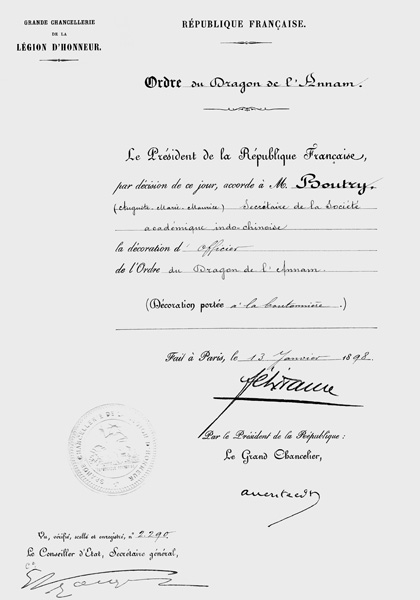 GRANDE CHANCELLERIE
DE LA
LÉGION D'HONNEUR.
RÉPUBLIQUE FRANÇAISE.
Ordre du Dragon de l'Annam.
Le Président de la République Française,
par décision de ce jour, accorde à M. Boutry.
(Auguste-Marie-Maurice) Secrétaire de la Société
académique indo-chinoise
la décoration d'officier
de l'Ordre du Dragon de l'Annam.
(Décoration portée à la boutonnière.)
Fait à Paris, le 13 Janvier 1898.
Par le Président de la République:
Le Grand Chancelier,
Vu, vérifié, scellé et enregistré, n° 2.290.
Le Conseiller d'Etat, Secrétaire général,